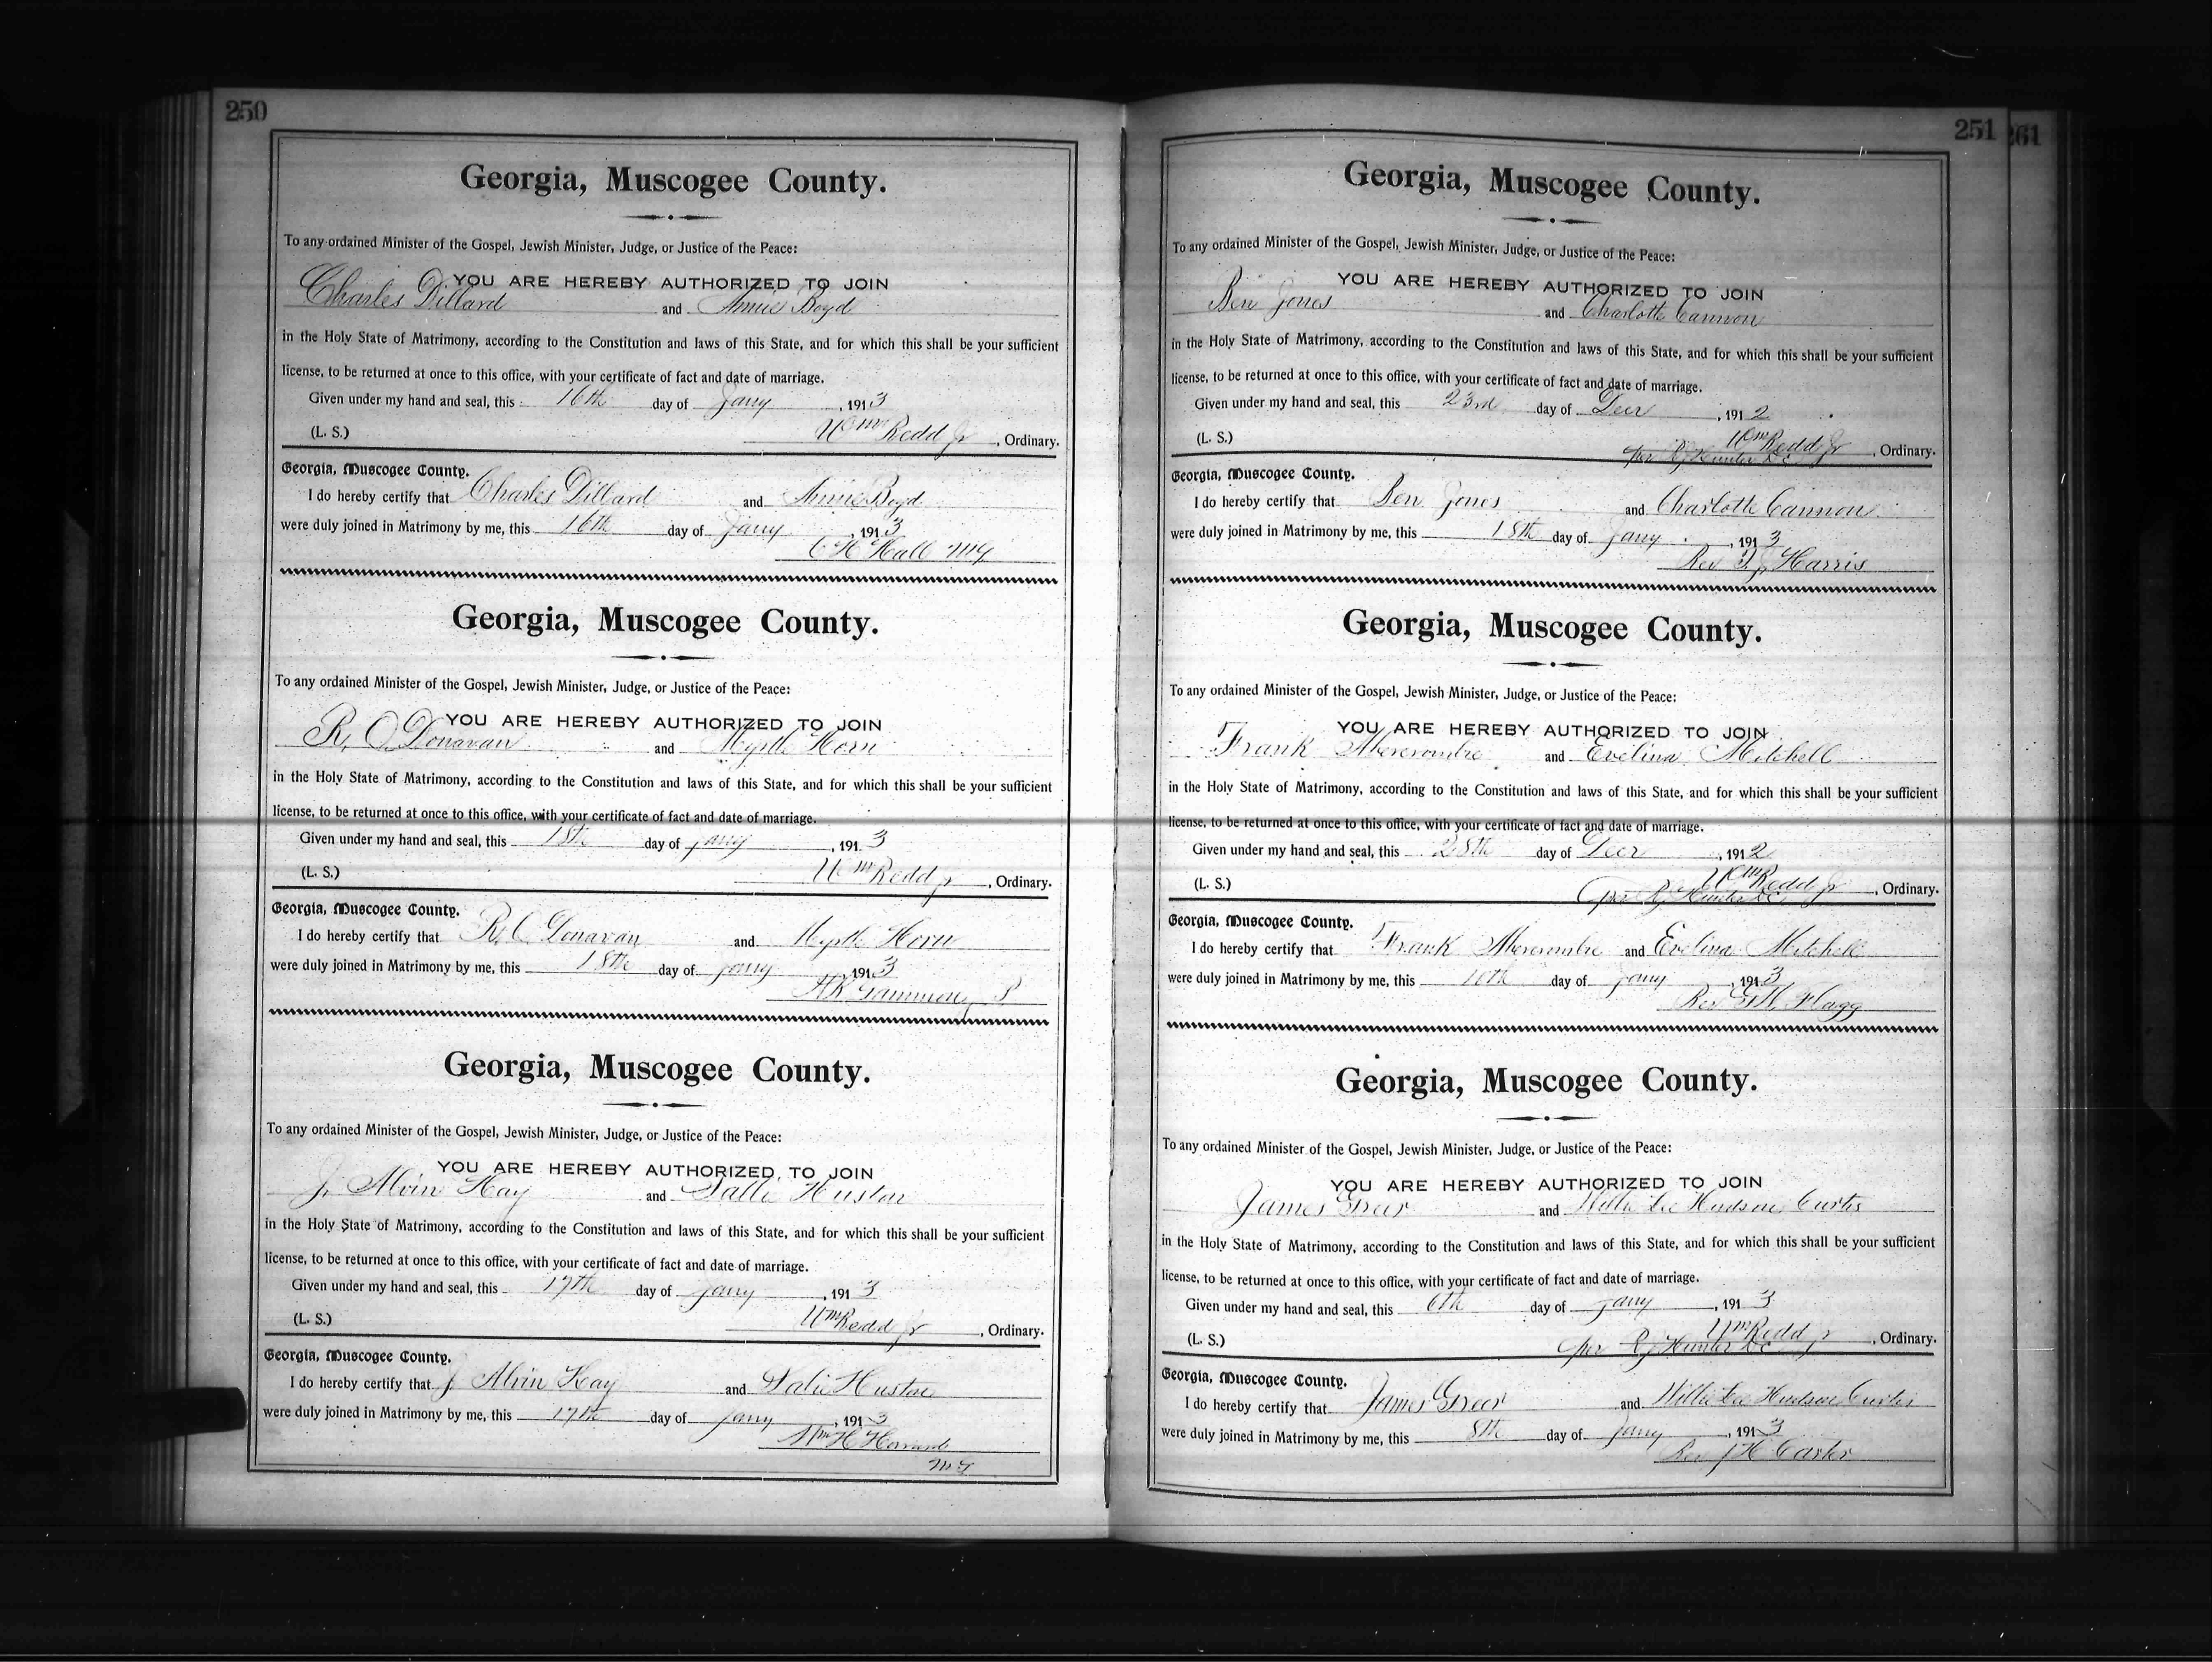 250
Georgia, Muscogee County.
To any ordained Minister of the Gospel, Jewish Minister, Judge, or Justice of the Peace:
YOU ARE HEREBY AUTHORIZED TO JOIN
Charles Dillard and Annie Boyd
in the Holy State of Matrimony, according to the Constitution and laws of this State, and for which this shall be your sufficient
license, to be returned at once to this office, with your certificate of fact and date of marriage.
Given under my hand and seal, this 16th day of Jany, 1913
(L. S.) Wm Redd Jr, Ordinary.
Georgia, Muscogee County.
I do hereby certify that Charles Dillard and Annie Boyd
were duly joined in Matrimony by me, this 16th day of Jany, 1913
C H Hall MG
Georgia, Muscogee County.
To any ordained Minister of the Gospel, Jewish Minister, Judge, or Justice of the Peace:
YOU ARE HEREBY AUTHORIZED TO JOIN
R. O. Donavan and Myrtle Horn
in the Holy State of Matrimony, according to the Constitution and laws of this State, and for which this shall be your sufficient
license, to be returned at once to this office, with your certificate of fact and date of marriage.
Given under my hand and seal, this 18th day of Jany, 1913
(L. S.) Wm Redd Jr, Ordinary.
Georgia, Muscogee County.
I do hereby certify that R. O. Donavan and Myrtle Horn
were duly joined in Matrimony by me, this 18th day of Jany, 1913
Georgia, Muscogee County.
To any ordained Minister of the Gospel, Jewish Minister, Judge, or Justice of the Peace:
YOU ARE HEREBY AUTHORIZED TO JOIN
J. Alvin Kay and Salli Huston
in the Holy State of Matrimony, according to the Constitution and laws of this State, and for which this shall be your sufficient
license, to be returned at once to this office, with your certificate of fact and date of marriage.
Given under my hand and seal, this 17th day of Jany, 1913
(L. S.) Wm Redd Jr, Ordinary.
Georgia, Muscogee County.
I do hereby certify that J Alvin Kay and Salie Huston
were duly joined in Matrimony by me, this 17th day of Jany, 1913
Wm H Howard
MG
251
261
Georgia, Muscogee County.
To any ordained Minister of the Gospel, Jewish Minister, Judge, or Justice of the Peace:
YOU ARE HEREBY AUTHORIZED TO JOIN
Ben Jones and Charlotte Cannon
in the Holy State of Matrimony, according to the Constitution and laws of this State, and for which this shall be your sufficient
license, to be returned at once to this office, with your certificate of fact and date of marriage.
Given under my hand and seal, this 23rd day of Decr, 1912
(L. S.) Wm Redd Jr, Ordinary.
per RJ Hunter DC
Georgia, Muscogee County.
I do hereby certify that Ben Jones and Charlotte Cannon
were duly joined in Matrimony by me, this 18th day of Jany, 1913
Rev Harris
Georgia, Muscogee County.
To any ordained Minister of the Gospel, Jewish Minister, Judge, or Justice of the Peace:
YOU ARE HEREBY AUTHORIZED TO JOIN
Frank Abercrombie and Evelina Mitchell
in the Holy State of Matrimony, according to the Constitution and laws of this State, and for which this shall be your sufficient
license, to be returned at once to this office, with your certificate of fact and date of marriage.
Given under my hand and seal, this 28th day of Decr, 1912
(L. S.) Wm Redd Jr, Ordinary.
per RJ Hunter DC
Georgia, Muscogee County.
I do hereby certify that Frank Abercrombie and Evelina Mitchell
were duly joined in Matrimony by me, this day of Jany, 1913
Rev Flagg
Georgia, Muscogee County.
To any ordained Minister of the Gospel, Jewish Minister, Judge, or Justice of the Peace:
YOU ARE HEREBY AUTHORIZED TO JOIN
James Greer and Willie Lee Hudson Curtis
in the Holy State of Matrimony, according to the Constitution and laws of this State, and for which this shall be your sufficient
license, to be returned at once to this office, with your certificate of fact and date of marriage.
Given under my hand and seal, this 6th day of Jany, 1913
(L. S.) Wm Redd Jr, Ordinary.
per RJ Hunter DC
Georgia, Muscogee County.
I do hereby certify that James Greer and Willie Lee Hudson Curtis
were duly joined in Matrimony by me, this 8th day of Jany, 1913
Rev J H Carter